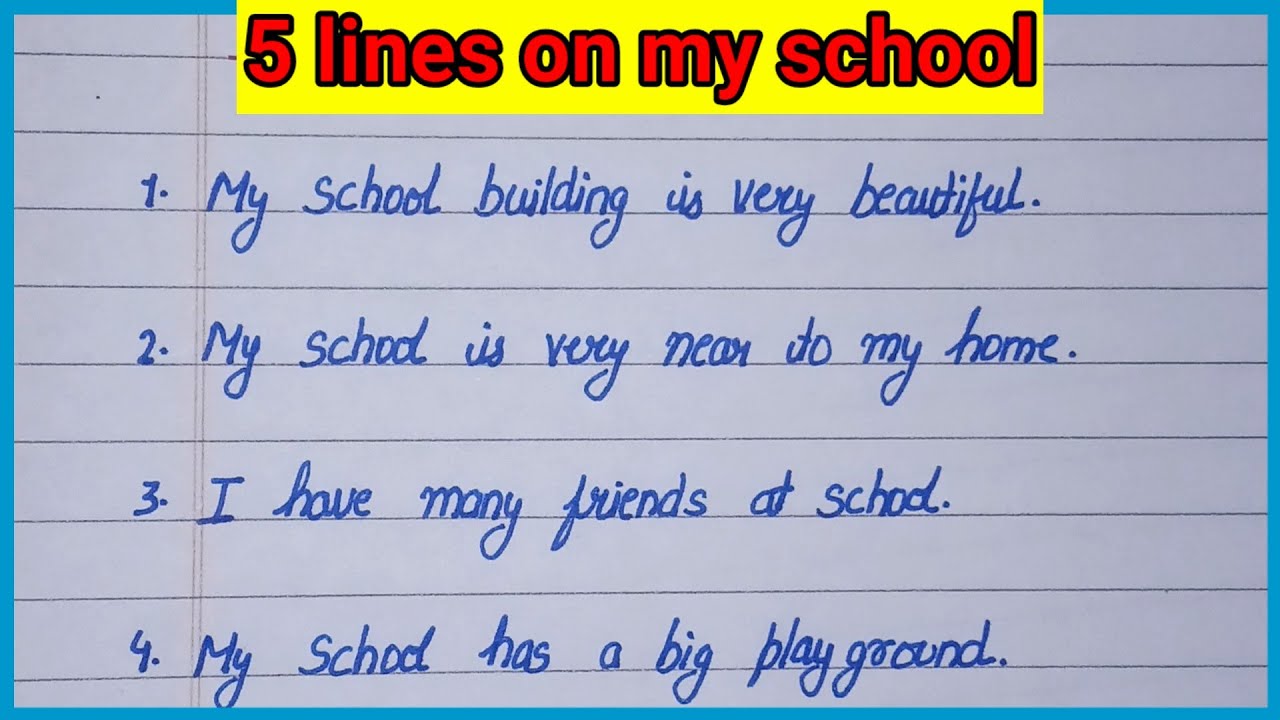 5 lines on my school
1. My school building is very beautiful.
2. My school is very near to my home.
3. I have many friends at school.
4. My school has a big play ground.